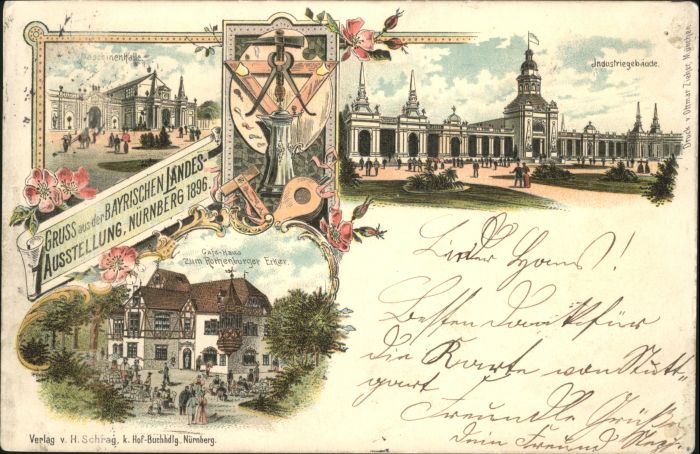 Maschinenhalle.
Industriegebäude.
GRUSS aus der BAYRISCHEN LANDES-
AUSSTELLUNG. NÜRNBERG 1896.
Café-Haus
zum Rothenburger Erker.
Lieber Hans!
Besten Dank für
die Karte von Stutt-
gart
Freundl. Grüße
Dein Freund
Verlag v. H. Schrag, k. Hof-Buchhdlg. Nürnberg.
Druck v. Ottmar Zieher, München.